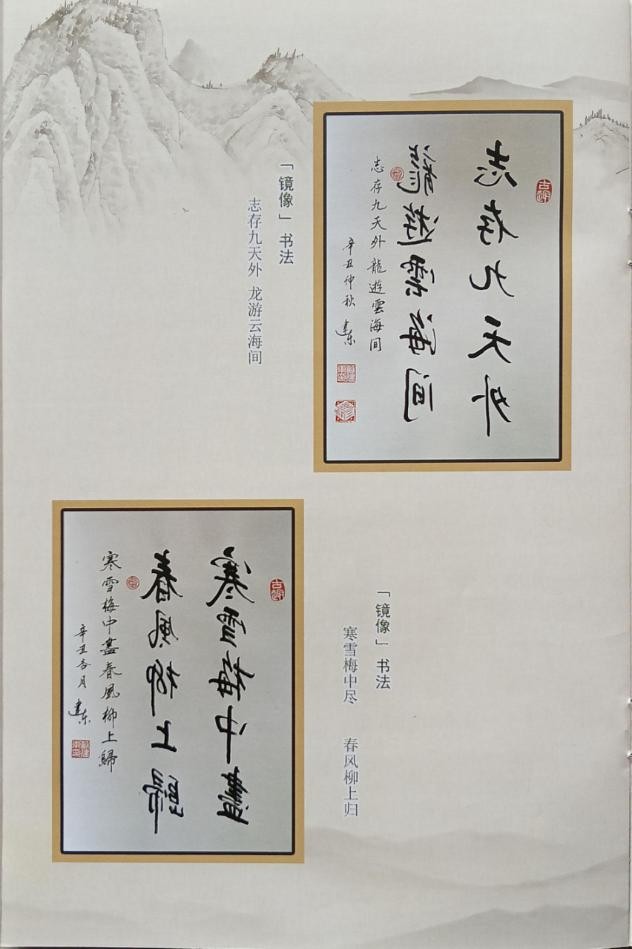 志存九天外
龍遊雲海间
志存九天外龍遊雲海间
辛丑仲秋 建东
「镜像」书法
志存九天外 龙游云海间
「镜像」书法
寒雪梅中尽 春风柳上归
寒雪梅中盡
春風柳上歸
寒雪梅中盡春風柳上歸
辛丑杏月 建东